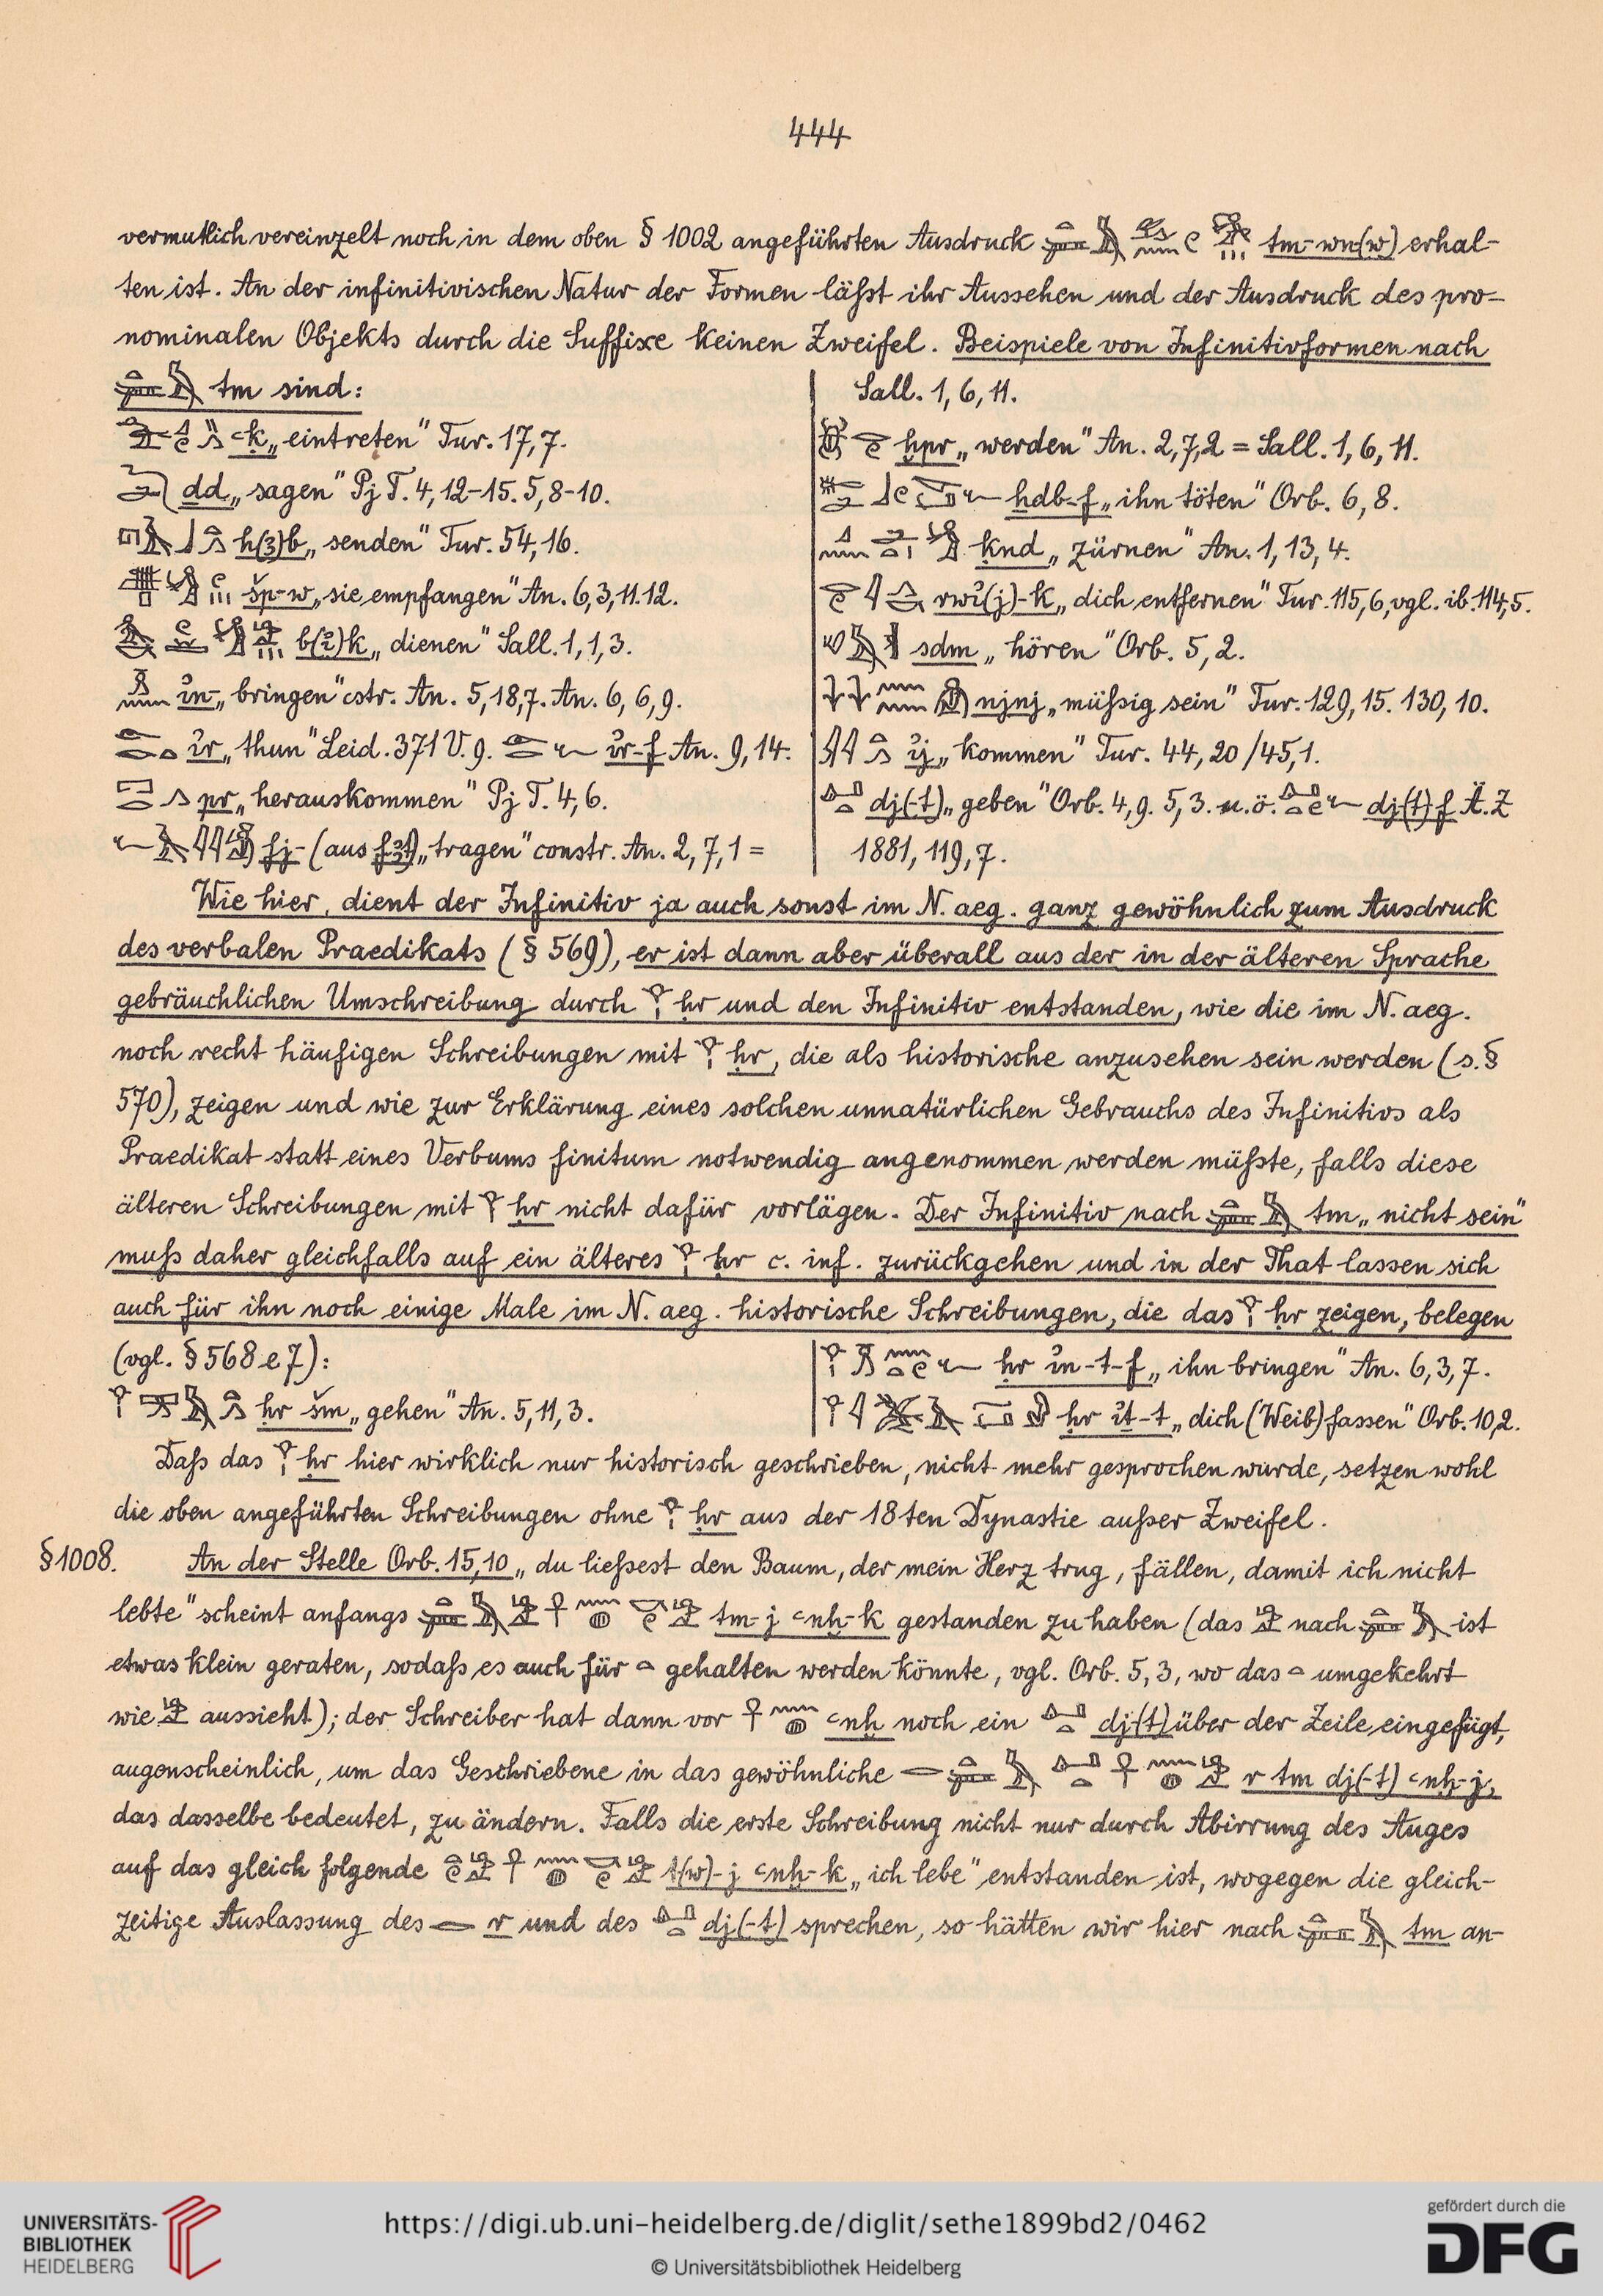 444
vermutlich vereinzelt noch in dem oben § 1002 angeführten Ausdruck tm-wn(w) erhal-
ten ist. An der infinitivischen Natur der Formen läßt ihr Aussehen und der Ausdruck des pro-
nominalen Objekts durch die Suffixe keinen Zweifel. Beispiele von Infinitivformen nach
tm sind:
ꜥḳ „eintreten" Tur. 17,7.
ḏd „sagen" Pj T. 4,12-15. 5,8-10.
h(ꜣ)b „senden" Tur. 54,16.
šp-w „sie empfangen" An. 6,3,11.12.
b(ꜣ)k „dienen" Sall. 1,1,3.
in- „bringen" cstr. An. 5,18,7. An. 6,6,9.
ir „thun" Leid. 371 V. 9. ir-f An. 9,14.
pr „herauskommen" Pj T. 4,6.
fj- (aus fꜣt) „tragen" constr. An. 2,7,1 =
Sall. 1,6,11.
ḫpr „werden" An. 2,7,2 = Sall. 1,6,11.
ḫdb-f „ihn töten" Orb. 6,8.
ḳnd „zürnen" An. 1,13,4.
rwi(j)-k „dich entfernen" Tur. 115,6, vgl. ib. 114,5.
sdm „hören" Orb. 5,2.
njnj „müßig sein" Tur. 129,15. 130,10.
ij „kommen" Tur. 44,20/45,1.
dj(-t) „geben" Orb. 4,9. 5,3. u. ö. dj(t)-f Ä. Z
1881, 119,7.
Wie hier, dient der Infinitiv ja auch sonst im N. aeg. ganz gewöhnlich zum Ausdruck
des verbalen Praedikats (§ 569), er ist dann aber überall aus der in der älteren Sprache
gebräuchlichen Umschreibung durch ḥr und den Infinitiv entstanden, wie die im N. aeg.
noch recht häufigen Schreibungen mit ḥr, die als historische anzusehen sein werden (s. §
570), zeigen und wie zur Erklärung eines solchen unnatürlichen Gebrauchs des Infinitivs als
Praedikat statt eines Verbums finitum notwendig angenommen werden müßte, falls diese
älteren Schreibungen mit ḥr nicht dafür vorlägen. Der Infinitiv nach tm „nicht sein"
muß daher gleichfalls auf ein älteres ḥr c. inf. zurückgehen und in der That lassen sich
auch für ihn noch einige Male im N. aeg. historische Schreibungen, die das ḥr zeigen, belegen
(vgl. § 568 e 7):
ḥr šm „gehen" An. 5,11,3.
ḥr in-t-f „ihn bringen" An. 6,3,7.
ḥr iṯ-t „dich (Weib) fassen" Orb. 10,2.
Daß das ḥr hier wirklich nur historisch geschrieben, nicht mehr gesprochen wurde, setzen wohl
die oben angeführten Schreibungen ohne ḥr aus der 18ten Dynastie außer Zweifel.
§ 1008. An der Stelle Orb. 15,10 „du ließest den Baum, der mein Herz trug, fällen, damit ich nicht
lebte" scheint anfangs tm-j ꜥnḫ-k gestanden zu haben (das nach ist
etwas klein geraten, sodaß es auch für gehalten werden könnte, vgl. Orb. 5,3, wo das umgekehrt
wie aussieht); der Schreiber hat dann vor ꜥnḫ noch ein dj(t) über der Zeile eingefügt,
augenscheinlich, um das Geschriebene in das gewöhnliche r tm dj(-t) ꜥnḫ-j,
das dasselbe bedeutet, zu ändern. Falls die erste Schreibung nicht nur durch Abirrung des Auges
auf das gleich folgende t(w)-j ꜥnḫ-k „ich lebe" entstanden ist, wogegen die gleich-
zeitige Auslassung des r und des dj(-t) sprechen, so hätten wir hier nach tm an-
UNIVERSITÄTS-
BIBLIOTHEK
HEIDELBERG
https://digi.ub.uni-heidelberg.de/diglit/sethe1899bd2/0462
© Universitätsbibliothek Heidelberg
gefördert durch die
DFG